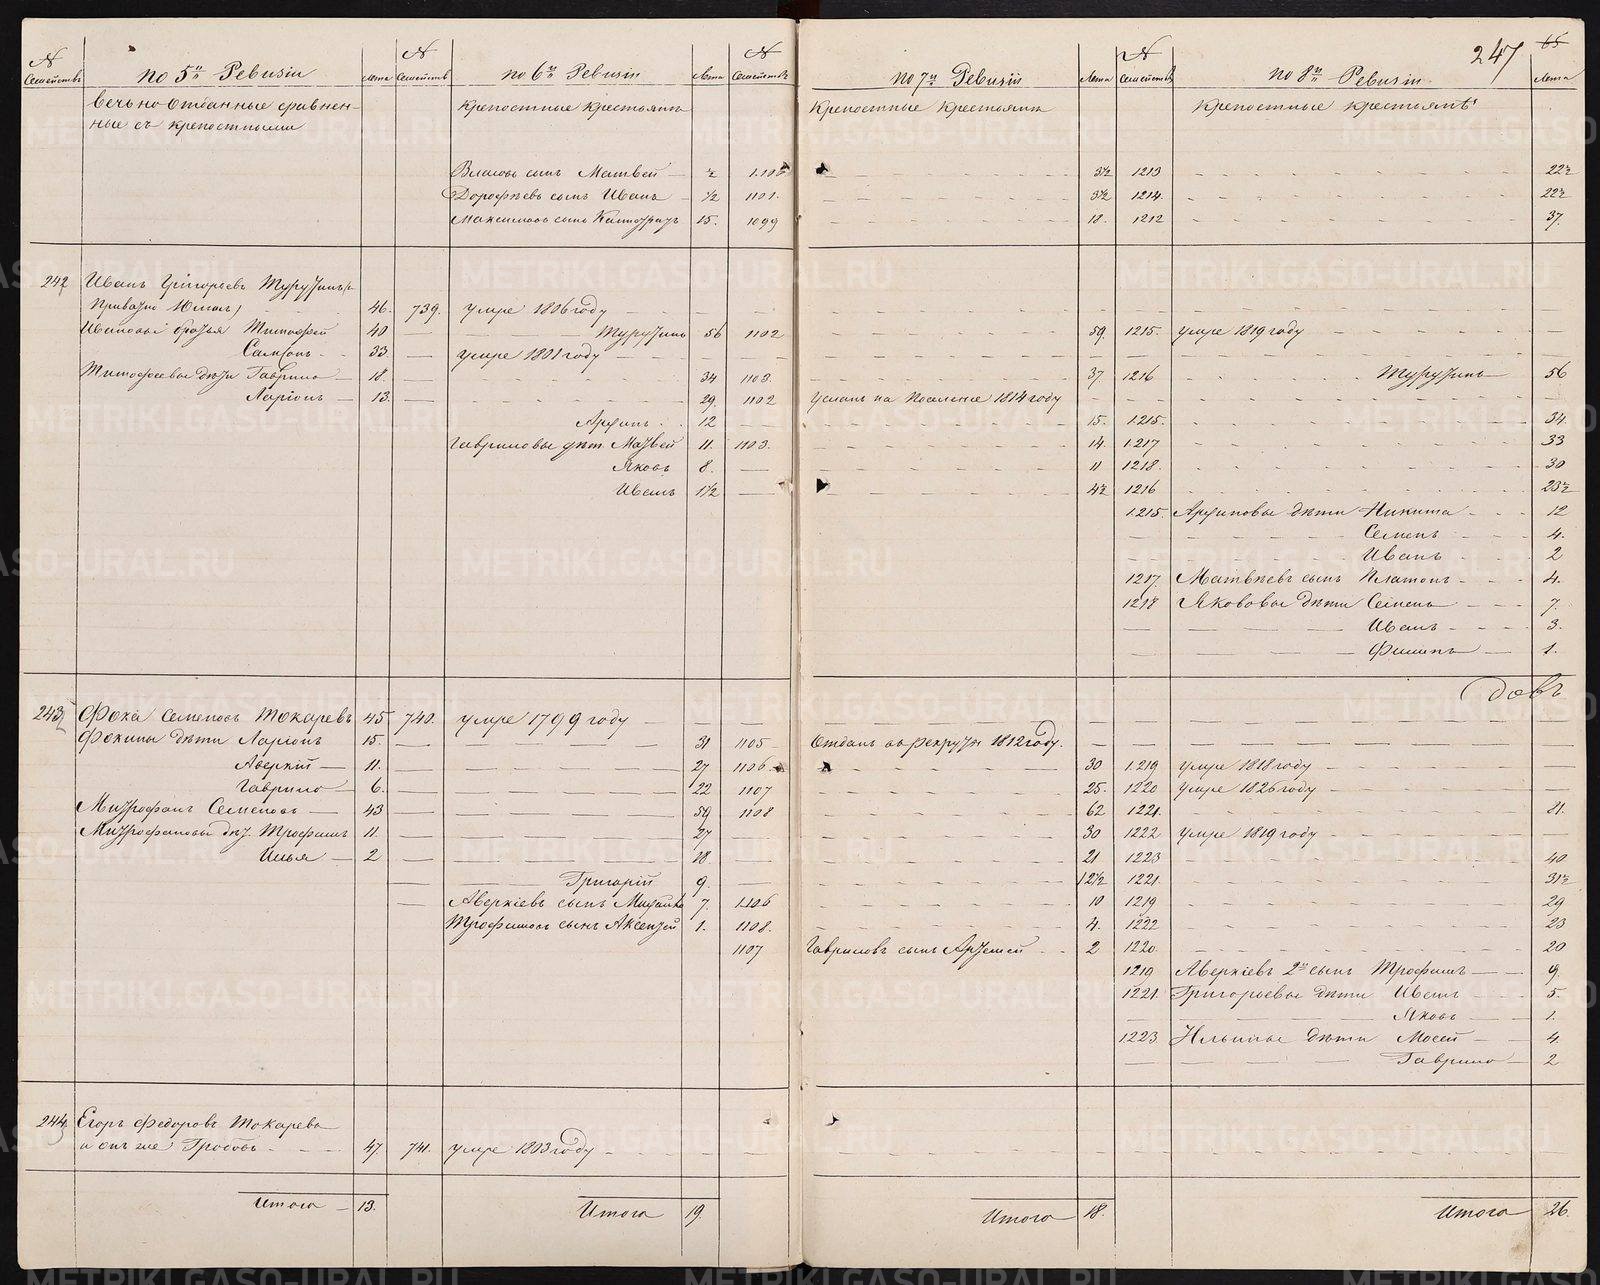 247
65
N Семействъ по 5й Ревизіи лета N Семействъ по 6й Ревизіи лета N Семействъ по 7й Ревизіи лета N Семействъ по 8й Ревизіи лета
вечно отданные сравнен- Крепостные крестьяна Крепостные крестьяна Крепостные крестьянѣ
ные съ крепостными
Власовъ сынъ Матвей ½ 1105 3½ 1213 22½
Дорофѣевъ сынъ Иванъ ½ 1101 3½ 1214 22½
Максимовъ сынъ 15. 1099 18. 1212 37.
242 Иванъ Григорьевъ
46. 739. умре 1806 году
Ивановы братья Тимофей 40 56 1102 59. 1215. умре 1819 году
Самсонъ 33. умре 1801 году
Тимофеевы дѣти Гаврило 18. 34 1103. 37 1216 56
Ларіонъ 13. 29. 1102 на поселение 1814 году
12 15. 1215. 34.
Гавриловы дѣти Матвей 11. 1103. 14. 1217 33
Яковъ 8. 11 1218. 30
Иванъ 1½ 4½ 1216 23½
1215. дѣти Никита 12
Семенъ 4.
Иванъ 2
1217. Матвѣевъ сынъ Платонъ 4.
1218 Якововы дѣти Семенъ 7.
Иванъ 3.
Филипъ 1.
243 Фока Семеновъ Токаревъ 45 740. умре 1799 году
Фокины дѣти Ларіонъ 15. 31 1105 Отданъ в рекруты 1812 году.
Аверкій 11. 27 1106 30 1219 умре 1818 году
Гаврило 6. 22 1107 25. 1220 умре 1826 году
Митрофанъ Семеновъ 43 59 1108 62 1221. 21.
Митрофановы дѣт. Трофимъ 11. 27 30 1222 умре 1819 году
Илья 2 18. 21 1223 40
Григорій 9. 12½ 1221. 31½
Аверкіевъ сынъ 7. 1106 10 1219 29
Трофимовъ сынъ Аксентей 1. 1108. 4. 1222 23
1107 Гавриловъ сынъ Артемей 2 1220 20
1219 Аверкіевъ 2й сынъ Трофимъ 9.
1221. Григорьевы дѣти Иванъ 5.
Яковъ 1.
1223 Ильины дѣти Мосей 4.
Гаврило 2
244. Егоръ Федоровъ Токаревъ
онъ же Гробовъ 47. 741. умре 1803 году
Итого 13. Итого 19. Итого 18. Итого 26.
METRIKI.GASO-URAL.RU